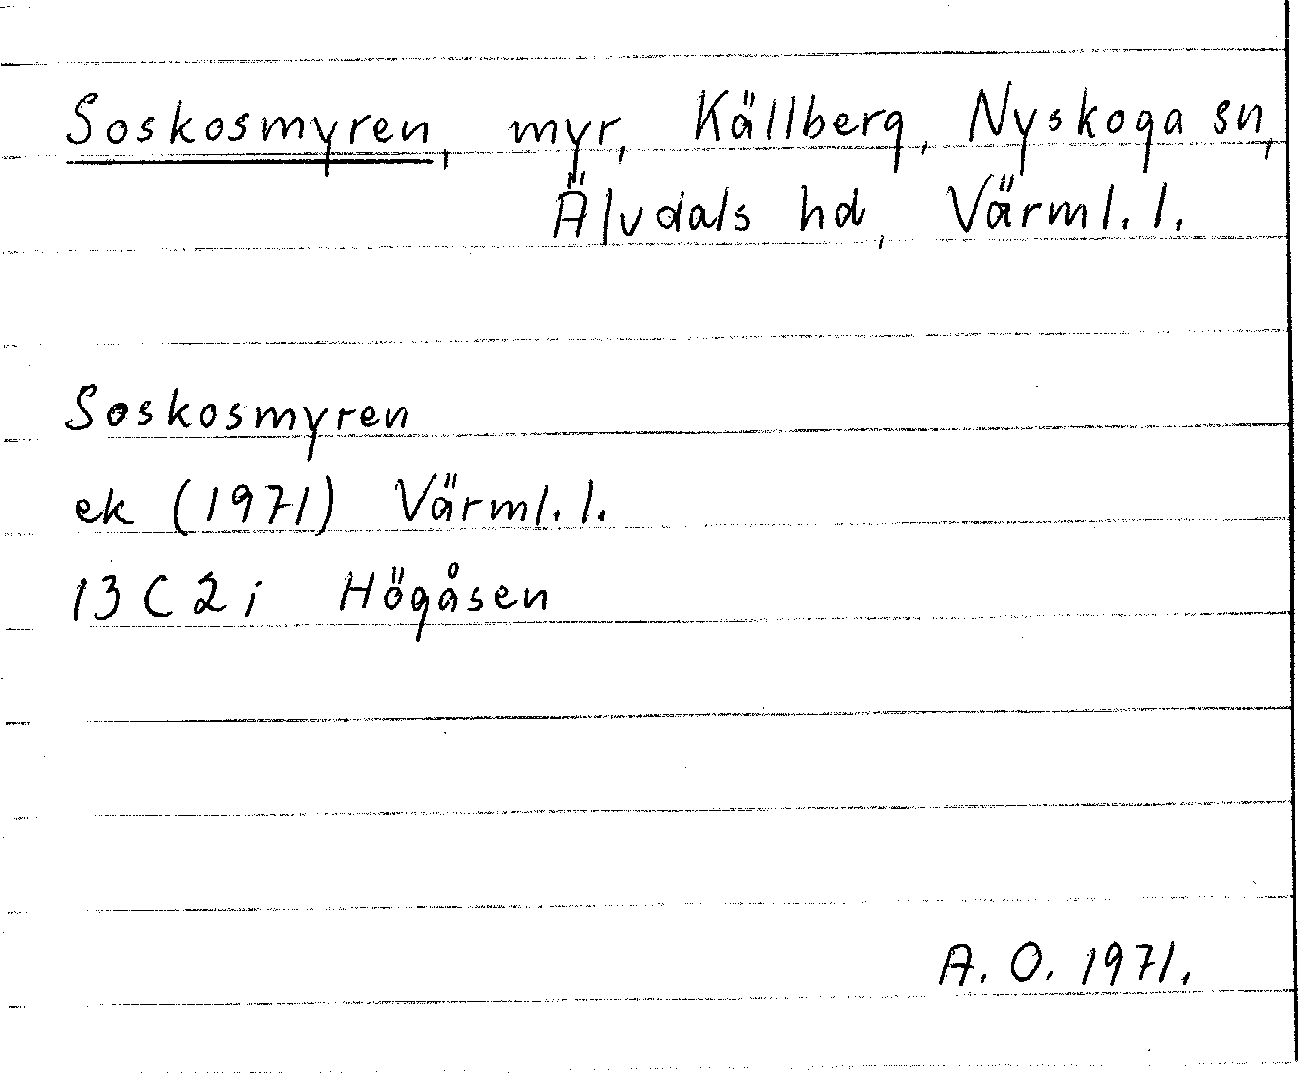 Soskosmyren, myr, Källberg, Nyskoga sn,
Älvdals hd, Värml. l.
Soskosmyren
ek (1971) Värml. l.
13 C 2 i Högåsen
A. O. 1971.